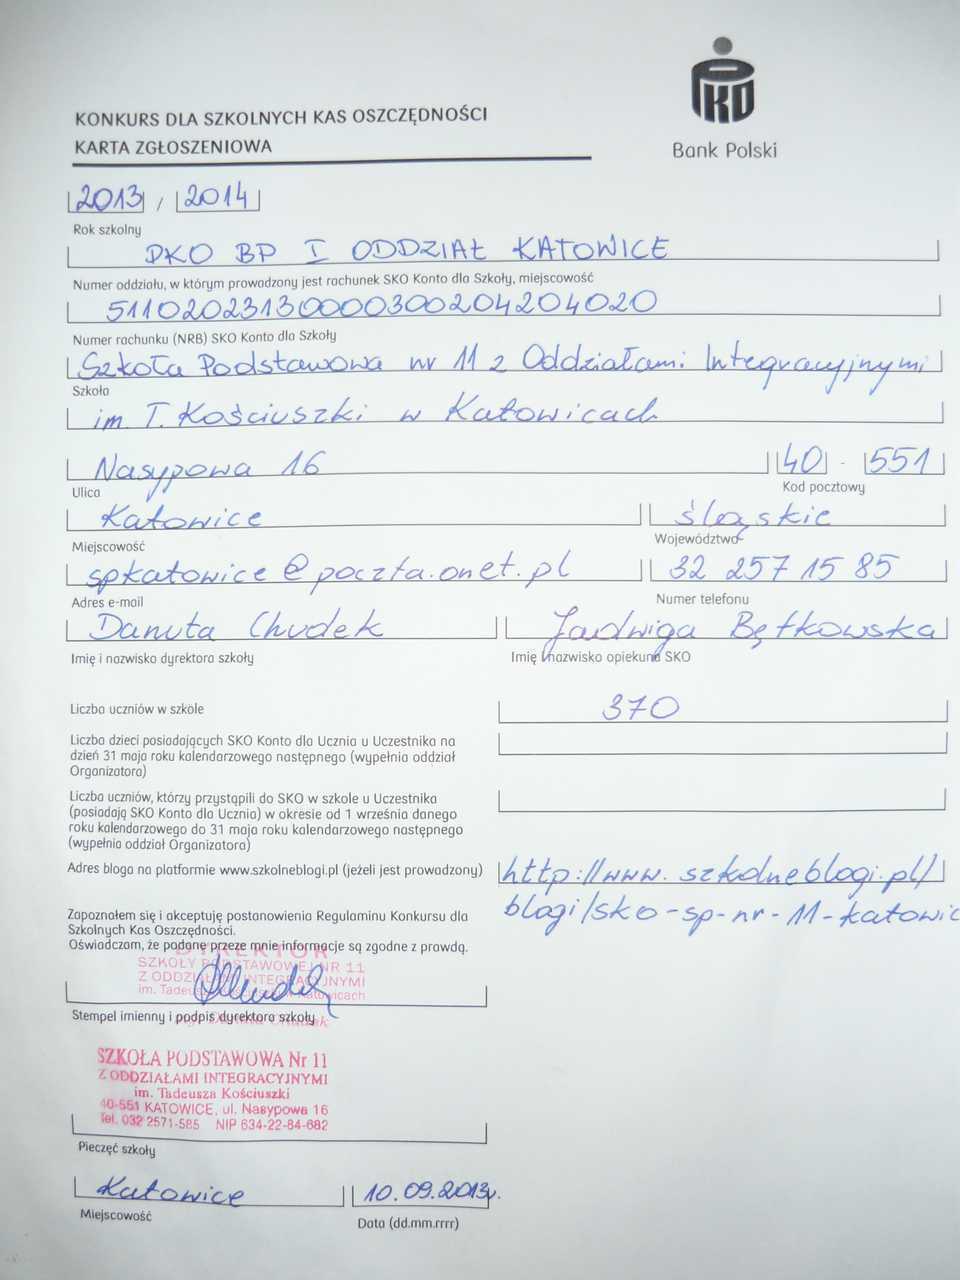 KONKURS DLA SZKOLNYCH KAS OSZCZĘDNOŚCI
KARTA ZGŁOSZENIOWA
PKO
Bank Polski
2013 / 2014
Rok szkolny
PKO BP I ODDZIAŁ KATOWICE
Numer oddziału, w którym prowadzony jest rachunek SKO Konto dla Szkoły, miejscowość
51102023130000300204204020
Numer rachunku (NRB) SKO Konto dla Szkoły
Szkoła Podstawowa nr 11 z Oddziałami Integracyjnymi
Szkoła
im. T. Kościuszki w Katowicach
Nasypowa 16 40 - 551
Ulica Kod pocztowy
Katowice śląskie
Miejscowość Województwo
spkatowice@poczta.onet.pl 32 257 15 85
Adres e-mail Numer telefonu
Danuta Chudek Jadwiga Bętkowska
Imię i nazwisko dyrektora szkoły Imię i nazwisko opiekuna SKO
Liczba uczniów w szkole 370
Liczba dzieci posiadających SKO Konto dla Ucznia u Uczestnika na
dzień 31 maja roku kalendarzowego następnego (wypełnia oddział
Organizatora)
Liczba uczniów, którzy przystąpili do SKO w szkole u Uczestnika
(posiadają SKO Konto dla Ucznia) w okresie od 1 września danego
roku kalendarzowego do 31 maja roku kalendarzowego następnego
(wypełnia oddział Organizatora)
Adres bloga na platformie www.szkolneblogi.pl (jeżeli jest prowadzony) http://www.szkolneblogi.pl/
blogi/sko-sp-nr-11-katowic
Zapoznałem się i akceptuję postanowienia Regulaminu Konkursu dla
Szkolnych Kas Oszczędności.
Oświadczam, że podane przeze mnie informacje są zgodne z prawdą.
DYREKTOR
SZKOŁY PODSTAWOWEJ NR 11
Z ODDZIAŁAMI INTEGRACYJNYMI
im. Tadeusza Kościuszki w Katowicach
Stempel imienny i podpis dyrektora szkoły
SZKOŁA PODSTAWOWA Nr 11
Z ODDZIAŁAMI INTEGRACYJNYMI
im. Tadeusza Kościuszki
40-551 KATOWICE, ul. Nasypowa 16
Tel. 032 2571-585 NIP 634-22-84-682
Pieczęć szkoły
Katowice 10.09.2013r.
Miejscowość Data (dd.mm.rrrr)